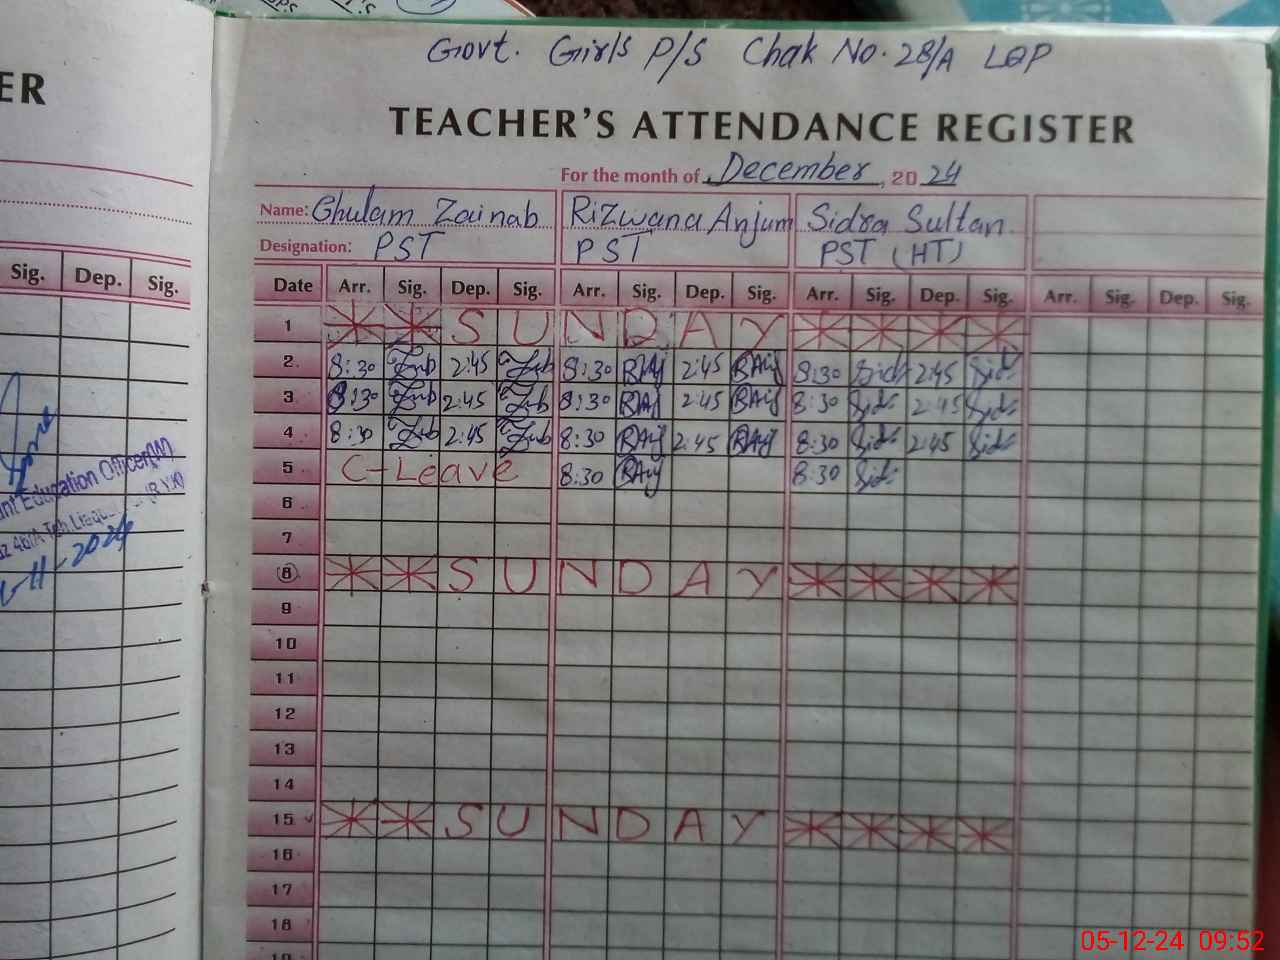 Govt. Girls P/S Chak No. 28/A LQP
ER
TEACHER'S ATTENDANCE REGISTER
For the month of December, 2024
Name: Ghulam Zainab Rizwana Anjum Sidra Sultan
Designation: PST PST PST (HT)
Sig. Dep. Sig.
Date Arr. Sig. Dep. Sig. Arr. Sig. Dep. Sig. Arr. Sig. Dep. Sig. Arr. Sig. Dep. Sig.
1 SUNDAY
2. 8:30 Znb 2:45 Znb 8:30 RAnj 2:45 RAnj 8:30 Sid 2:45 Sid
3 8:30 Znb 2:45 Znb 8:30 RAnj 2:45 RAnj 8:30 Sid 2:45 Sid
4 8:30 Znb 2:45 Znb 8:30 RAnj 2:45 RAnj 8:30 Sid 2:45 Sid
5 C-Leave 8:30 RAnj 8:30 Sid
6
7
8 SUNDAY
9
10
11
12
13
14
15 SUNDAY
16
17
18
19
Education Officer(W)
11-2024
05-12-24 09:52